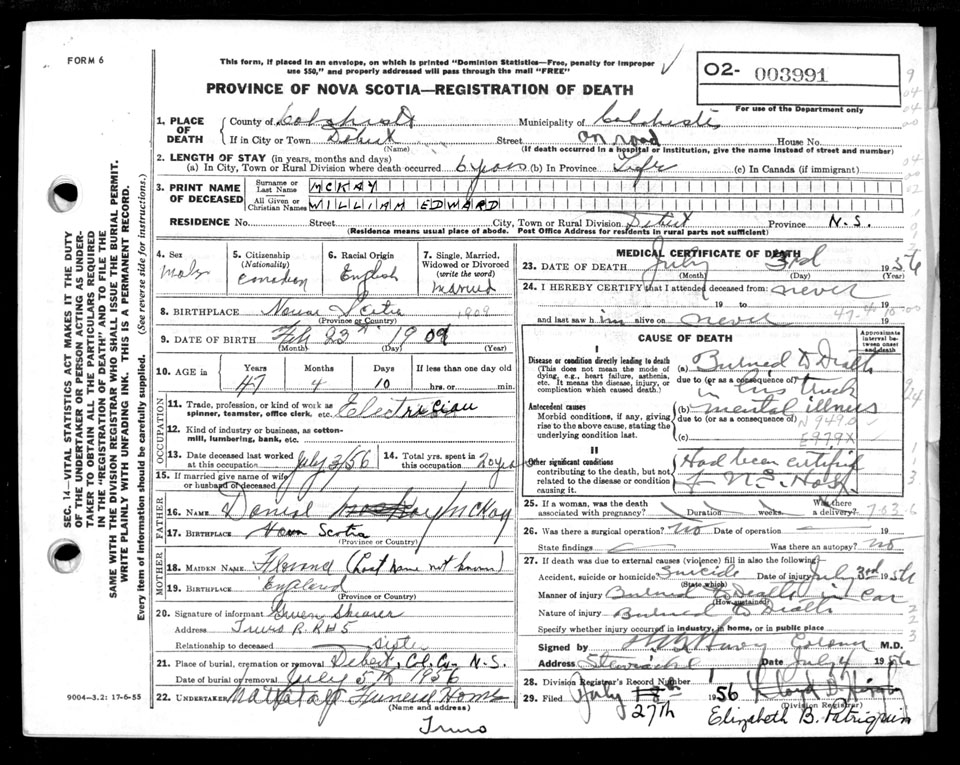 FORM 6
This form, if placed in an envelope, on which is printed "Dominion Statistics—Free, penalty for improper
use $50," and properly addressed will pass through the mail "FREE"
O2- 003991
PROVINCE OF NOVA SCOTIA—REGISTRATION OF DEATH
For use of the Department only
SEC. 14—VITAL STATISTICS ACT MAKES IT THE DUTY
OF THE UNDERTAKER OR PERSON ACTING AS UNDER-
TAKER TO OBTAIN ALL THE PARTICULARS REQUIRED
IN THE "REGISTRATION OF DEATH" AND TO FILE THE
SAME WITH THE DIVISION REGISTRAR WHO SHALL ISSUE THE BURIAL PERMIT.
WRITE PLAINLY WITH UNFADING INK. THIS IS A PERMANENT RECORD.
Every item of information should be carefully supplied. (See reverse side for instructions.)
1. PLACE OF DEATH
County of Colchester Municipality of Colchester
If in City or Town Debert Street on road House No.
(Name) (If death occurred in a hospital or institution, give the name instead of street and number)
2. LENGTH OF STAY (in years, months and days)
(a) In City, Town or Rural Division where death occurred 6 years (b) In Province Life (c) In Canada (if immigrant)
3. PRINT NAME OF DECEASED
Surname or Last Name MCKAY
All Given or Christian Names WILLIAM EDWARD
RESIDENCE No. Street City, Town or Rural Division Debert Province N.S.
(Residence means usual place of abode. Post Office Address for residents in rural parts not sufficient)
4. Sex Male
5. Citizenship (Nationality) Canadian
6. Racial Origin English
7. Single, Married, Widowed or Divorced (write the word) Married
8. BIRTHPLACE Nova Scotia
(Province or Country) 1909
9. DATE OF BIRTH Feb 23rd 1909
(Month) (Day) (Year)
10. AGE in Years Months Days If less than one day old
47 4 10 hrs. or min.
OCCUPATION
11. Trade, profession, or kind of work as spinner, teamster, office clerk, etc. Electrician
12. Kind of industry or business, as cotton-mill, lumbering, bank, etc.
13. Date deceased last worked at this occupation July 3/56
14. Total yrs. spent in this occupation 20 years
15. If married give name of wife or husband of deceased
FATHER
16. NAME Daniel McKay
17. BIRTHPLACE Nova Scotia
(Province or Country)
MOTHER
18. MAIDEN NAME Florence (Last name not known)
19. BIRTHPLACE England
(Province or Country)
20. Signature of informant Gwen Shearer
Address Truro R.R # 5
Relationship to deceased sister
21. Place of burial, cremation or removal Debert, Col. Co. N.S.
Date of burial or removal July 5th 1956
22. UNDERTAKER Mattatall Funeral Home
(Name and address)
Truro
9004—3.2: 17-6-55
MEDICAL CERTIFICATE OF DEATH
23. DATE OF DEATH July 3rd 1956
(Month) (Day)
24. I HEREBY CERTIFY that I attended deceased from never
19 to 19
and last saw him alive on never 19
CAUSE OF DEATH
Approximate interval between onset and death
I
Disease or condition directly leading to death
(This does not mean the mode of dying, e.g., heart failure, asthenia, etc. It means the disease, injury, or complication which caused death.)
(a) Burned to Death
due to (or as a consequence of) in his truck
Antecedent causes
Morbid conditions, if any, giving rise to the above cause, stating the underlying condition last.
(b) mental illness
due to (or as a consequence of) N949.0
(c) E979X
II
Other significant conditions
contributing to the death, but not related to the disease or condition causing it.
Had been certified
N.S. Hosp.
25. If a woman, was the death associated with pregnancy? Duration weeks. Was there a delivery?
26. Was there a surgical operation? No Date of operation 19
State findings Was there an autopsy? No
27. If death was due to external causes (violence) fill in also the following:
Accident, suicide or homicide Suicide Date of injury July 3rd 1956
(State which)
Manner of injury Burned to Death in car
(How sustained)
Nature of injury Burned to Death
Specify whether injury occurred in industry, in home, or in public place
Signed by Coroner M.D.
Address Stewiacke Date July 4 1956
28. Division Registrar's Record Number
29. Filed July 27th 1956
(Division Registrar)
Elizabeth B. Patriquin